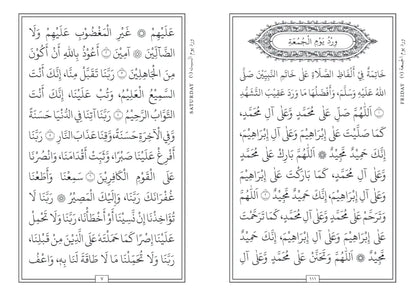 وِرْدُ يَوْمِ الْجُمُعَةِ
خَاتِمَةٌ فِي أَلْفَاظِ الصَّلَاةِ عَلَى خَاتَمِ النَّبِيِّينَ صَلَّى
اللَّهُ عَلَيْهِ وَسَلَّمَ، وَأَفْضَلُهَا مَا وَرَدَ عَقِيبَ التَّشَهُّدِ
اللَّهُمَّ صَلِّ عَلَى مُحَمَّدٍ وَعَلَى آلِ مُحَمَّدٍ،
كَمَا صَلَّيْتَ عَلَى إِبْرَاهِيمَ وَعَلَى آلِ إِبْرَاهِيمَ،
إِنَّكَ حَمِيدٌ مَجِيدٌ اللَّهُمَّ بَارِكْ عَلَى مُحَمَّدٍ
وَعَلَى آلِ مُحَمَّدٍ، كَمَا بَارَكْتَ عَلَى إِبْرَاهِيمَ
وَعَلَى آلِ إِبْرَاهِيمَ، إِنَّكَ حَمِيدٌ مَجِيدٌ اللَّهُمَّ
وَتَرَحَّمْ عَلَى مُحَمَّدٍ وَعَلَى آلِ مُحَمَّدٍ، كَمَا تَرَحَّمْتَ
عَلَى إِبْرَاهِيمَ وَعَلَى آلِ إِبْرَاهِيمَ، إِنَّكَ حَمِيدٌ
مَجِيدٌ اللَّهُمَّ وَتَحَنَّنْ عَلَى مُحَمَّدٍ وَعَلَى آلِ
١١١
FRIDAY (٦) ورد يوم الجمعة
عَلَيْهِمْ غَيْرِ الْمَغْضُوبِ عَلَيْهِمْ وَلَا
الضَّالِّينَ آمِينَ أَعُوذُ بِاللَّهِ أَنْ أَكُونَ
مِنَ الْجَاهِلِينَ رَبَّنَا تَقَبَّلْ مِنَّا، إِنَّكَ أَنْتَ
السَّمِيعُ الْعَلِيمُ، وَتُبْ عَلَيْنَا، إِنَّكَ أَنْتَ
التَّوَّابُ الرَّحِيمُ رَبَّنَا آتِنَا فِي الدُّنْيَا حَسَنَةً
وَفِي الْآخِرَةِ حَسَنَةً، وَقِنَا عَذَابَ النَّارِ رَبَّنَا
أَفْرِغْ عَلَيْنَا صَبْرًا، وَثَبِّتْ أَقْدَامَنَا، وَانْصُرْنَا
عَلَى الْقَوْمِ الْكَافِرِينَ سَمِعْنَا وَأَطَعْنَا
غُفْرَانَكَ رَبَّنَا، وَإِلَيْكَ الْمَصِيرُ رَبَّنَا لَا
تُؤَاخِذْنَا إِنْ نَسِينَا أَوْ أَخْطَأْنَا، رَبَّنَا وَلَا تَحْمِلْ
عَلَيْنَا إِصْرًا كَمَا حَمَلْتَهُ عَلَى الَّذِينَ مِنْ قَبْلِنَا،
رَبَّنَا وَلَا تُحَمِّلْنَا مَا لَا طَاقَةَ لَنَا بِهِ، وَاعْفُ
٧